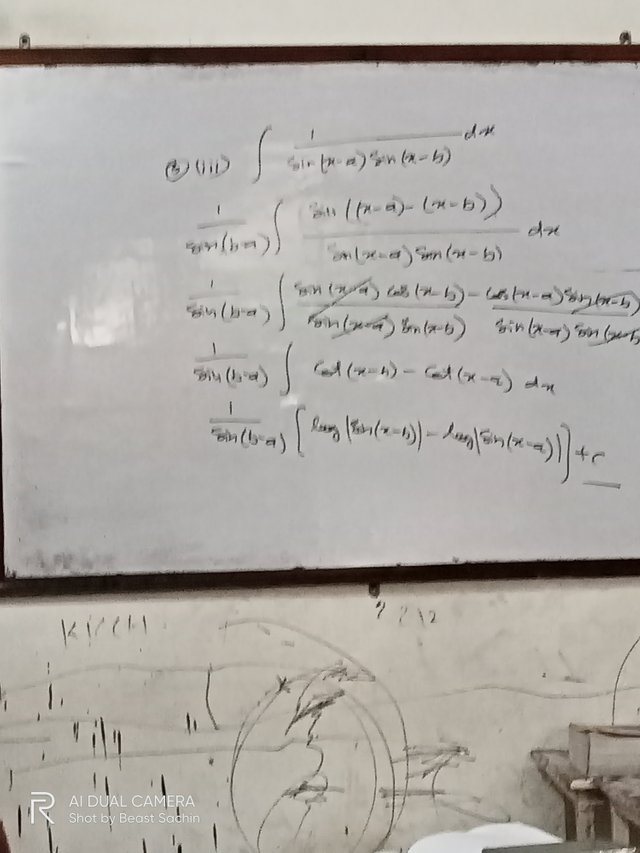 (3) (iii) ∫ 1 / sin(x-a) sin(x-b) dx
1 / sin(b-a) ∫ sin((x-a)-(x-b)) / sin(x-a) sin(x-b) dx
1 / sin(b-a) ∫ sin(x-a) cos(x-b) / sin(x-a) sin(x-b) - cos(x-a) sin(x-b) / sin(x-a) sin(x-b)
1 / sin(b-a) ∫ cot(x-b) - cot(x-a) dx
1 / sin(b-a) [log|sin(x-b)| - log|sin(x-a)|] + c
AI DUAL CAMERA
Shot by Beast Sachin